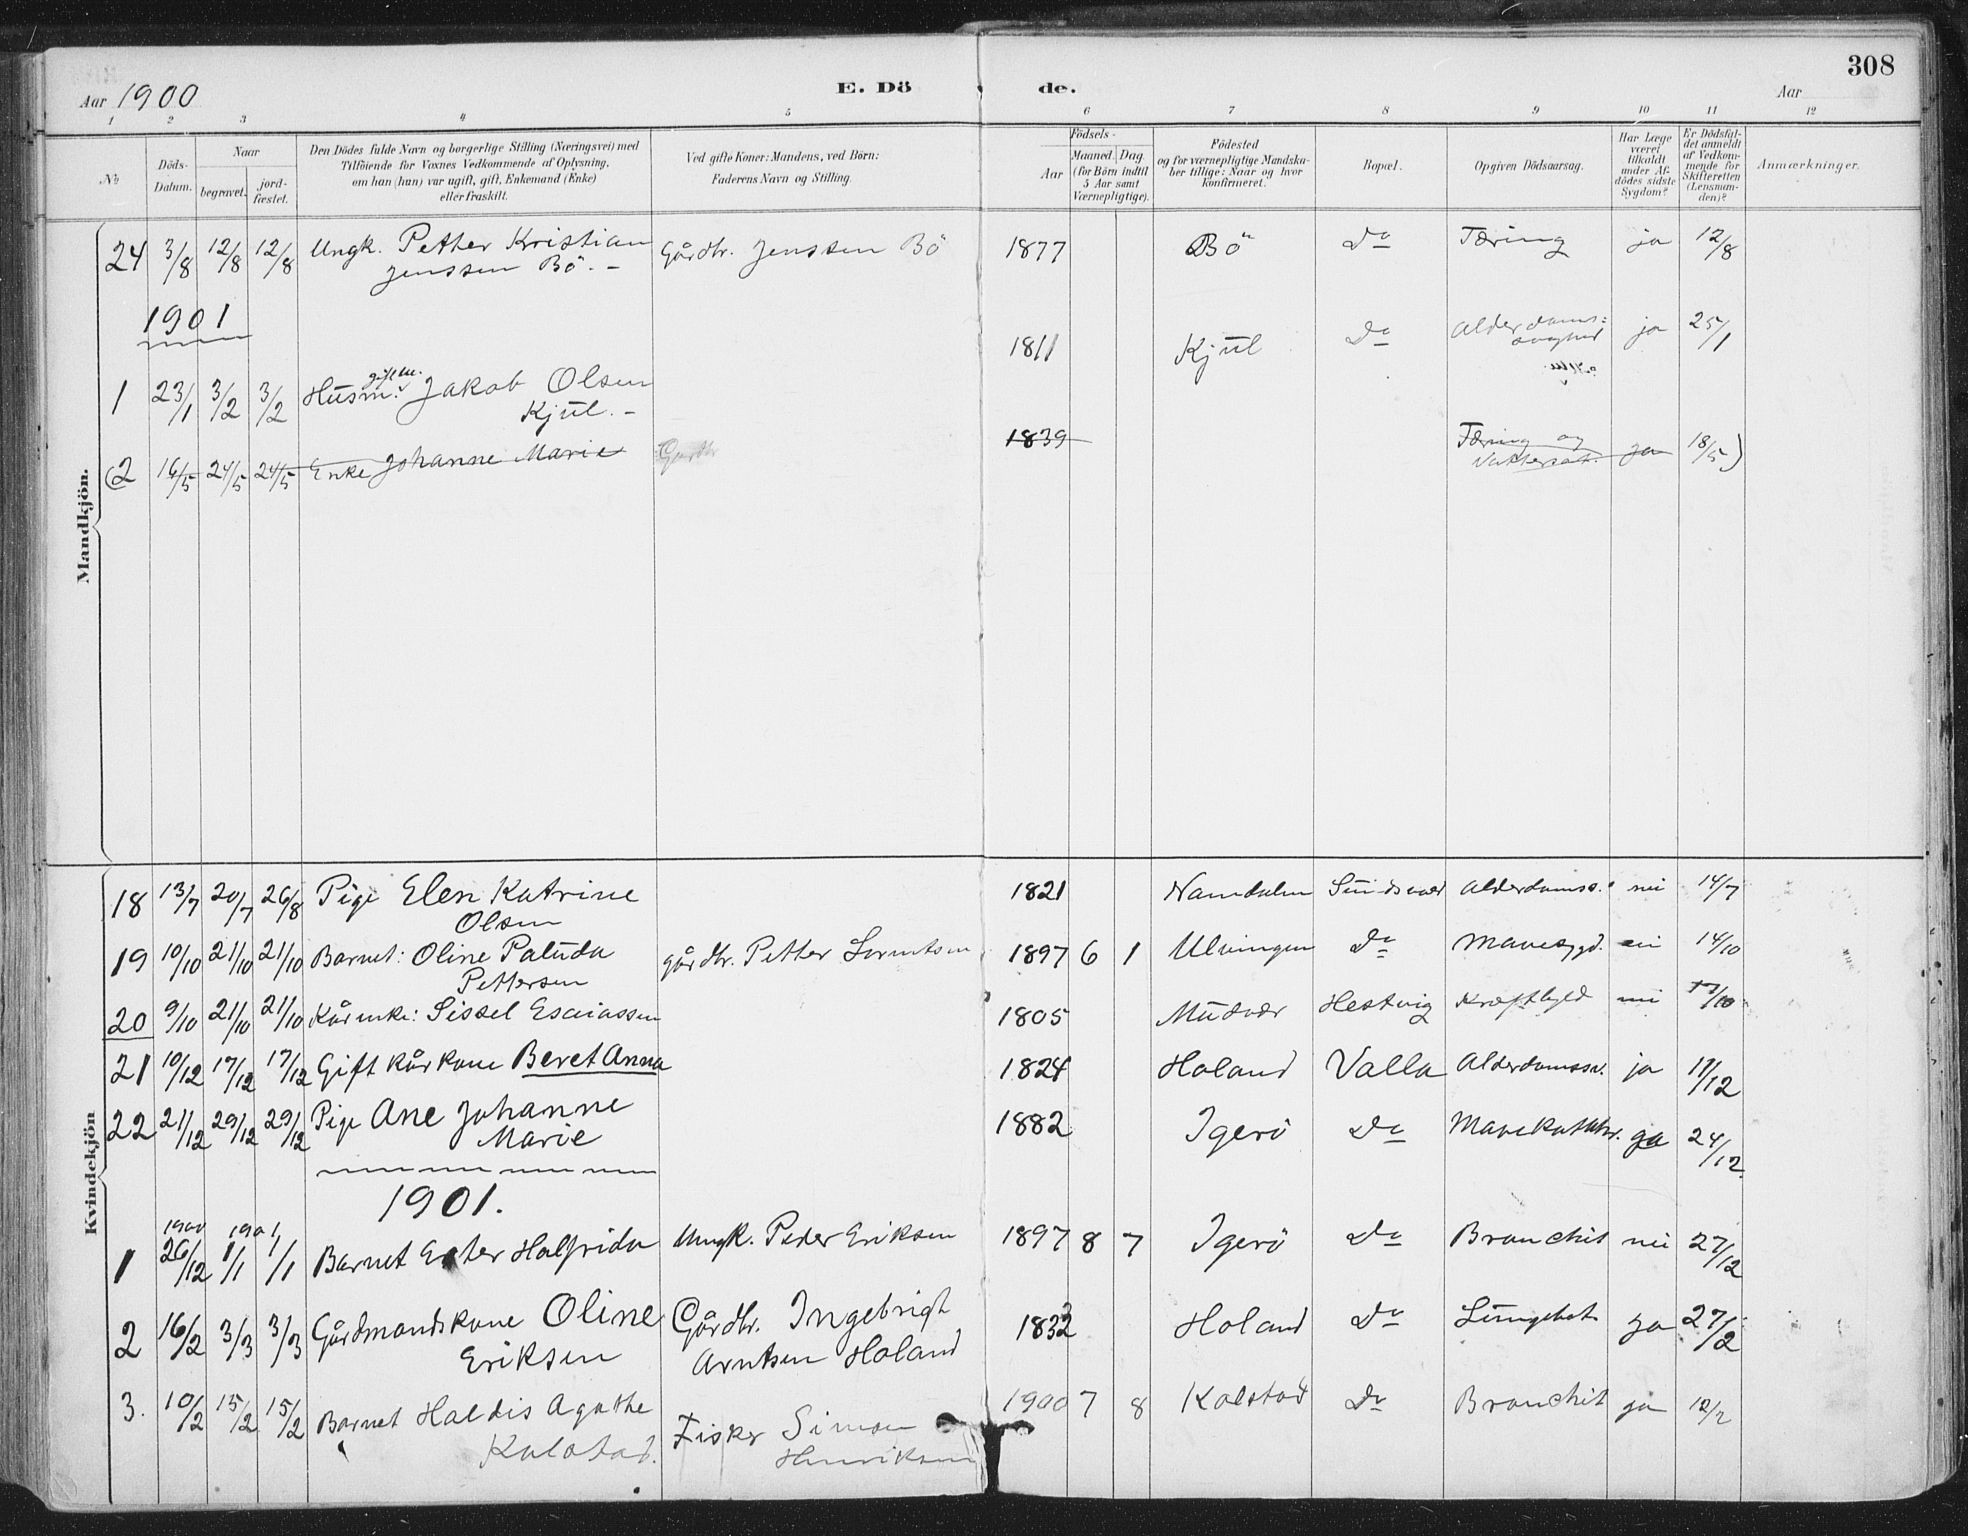 308
Aar 1900
E. Dö de.
Aar
1 2 3 4 5 6 7 8 9 10 11 12
№
Döds-Datum.
Naar
begravet.
jord-fæstet.
Den Dödes fulde Navn og borgerlige Stilling (Næringsvei) med
Tilföiende for Voxnes Vedkommende af Oplysning,
om han (hun) var ugift, gift, Enkemand (Enke)
eller fraskilt.
Ved gifte Koner: Mandens, ved Börn:
Faderens Navn og Stilling.
Födsels-
Aar
Maaned. Dag.
(for Börn indtil
5 Aar samt
Værnepligtige).
Födested
og for værnepligtige Mandska-
ber tillige: Naar og hvor
konfirmeret.
Bopæl.
Opgiven Dödsaarsag.
Har Læge
været
tilkaldt
under Af-
dödes sidste
Sygdom?
Er Dödsfal-
det anmeldt
af Vedkom-
mende for
Skifteretten
(Lensman-
den)?
Anmærkninger.
Mandkjön.
24 3/8 12/8 12/8 Ungk. Petter Kristian Gårdbr. Jenssen Bö 1877 Bö Do Tæring ja 12/8
Jenssen Bö. -
1901
1 23/1 3/2 3/2 Husm. gift m. Jakob Olsen 1811 Kjul Do Alderdoms= ja 25/1
Kjul. -
(2 16/5 24/5 24/5 Enke Johanne Marie Gårdbr 1839 Tæring og ja 18/5)
Vattersot.
Kvindekjön
18 13/7 20/7 26/8 Pige Elen Katrine 1821 Namdalen Sundsvær Alderdomss. nei 14/7
Olsen
19 10/10 21/10 21/10 Barnet: Oline Paluda gårdbr. Petter Lorntsen 1897 6 1 Ulvingen Do Mavesygd. nei 14/10
Pettersen
20 9/10 21/10 21/10 Kårenke: Sissel Esaiassen 1805 Mudvær Hestvig nei
21 10/12 17/12 17/12 Gift kårkone Beret Anna 1824 Holand Valla Alderdomssv. ja 17/12
22 21/12 29/12 29/12 Pige Ane Johanne 1882 Igerö Do Mavekatarrh. ja 24/12
Marie
1901.
1 1900 26/12 1901 1/1 1/1 Barnet Ester Halfrida Ungk. Peder Eriksen 1897 8 7 Igerö Do Bronchit nei 27/12
2 16/2 3/3 3/3 Gårdmandskone Oline Gårdbr. Ingebrigt 1832 Holand Do Lungebet. ja 27/2
Eriksen Arntsen Holand
3. 10/2 15/2 15/2 Barnet Haldis Agathe Fisker Simon 1900 7 8 Kolstad Do Bronchit ja 12/2
Kolstad. Henriksen